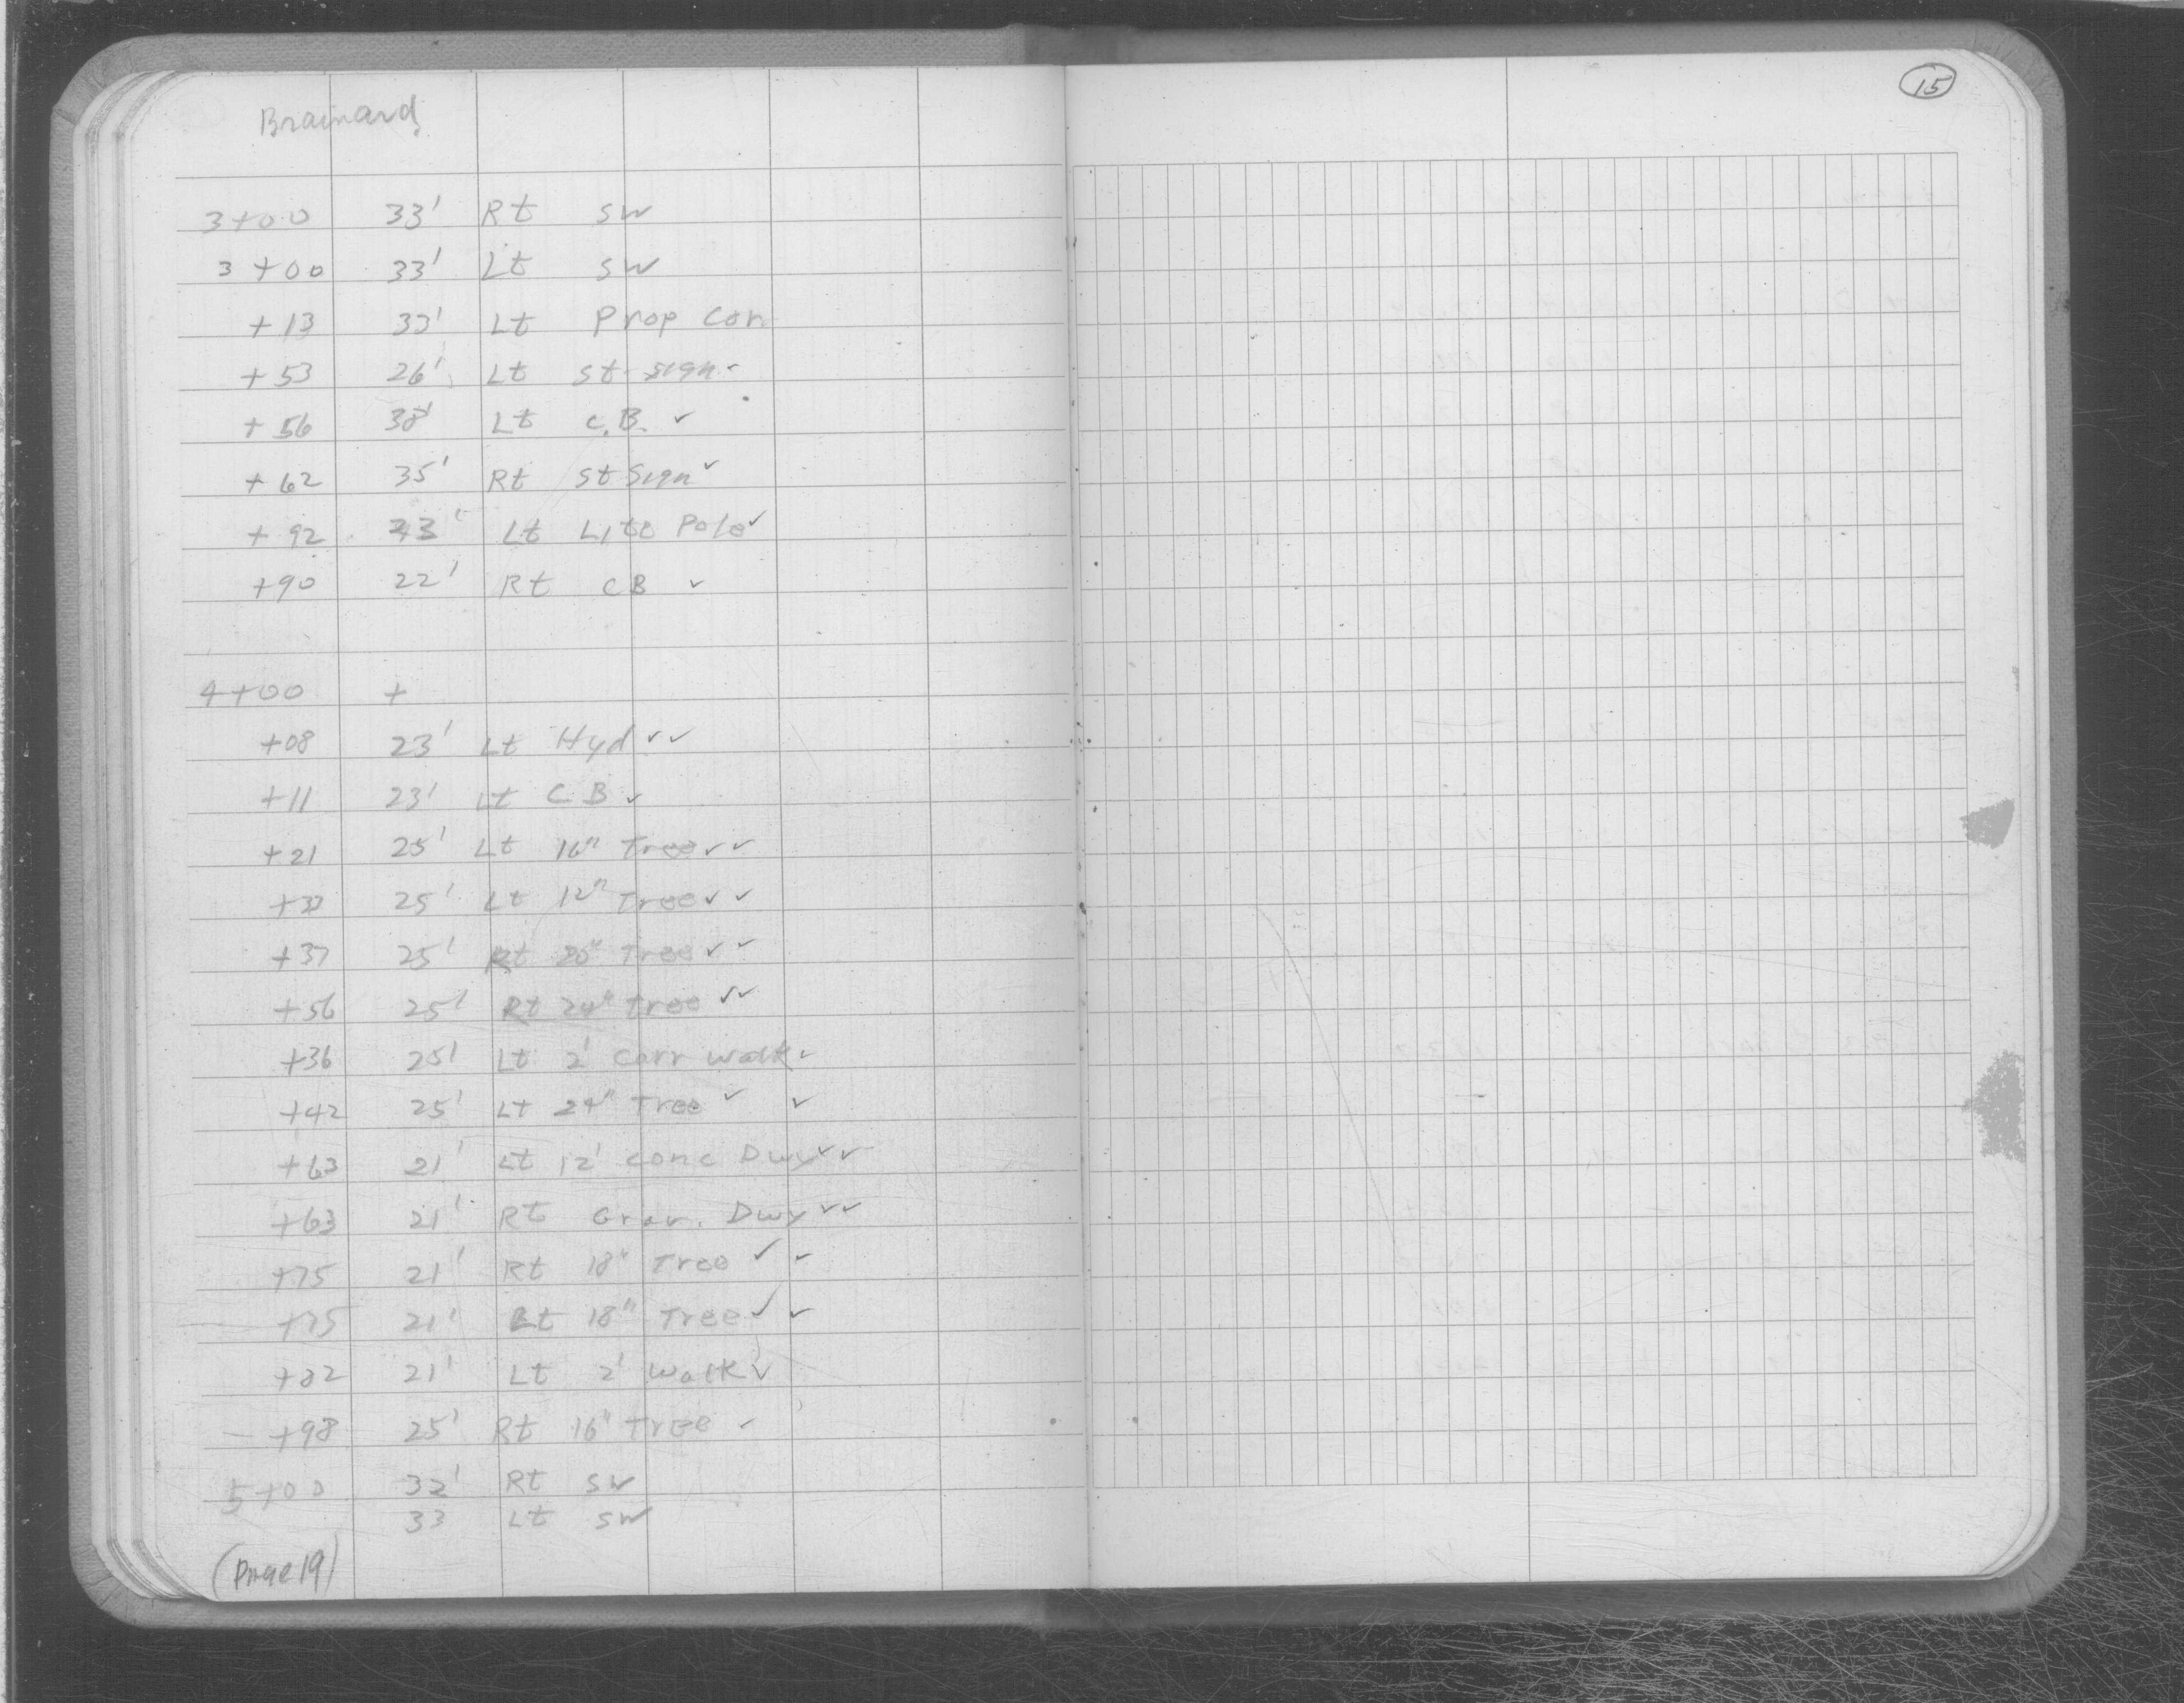 Brainard
15
3+00 33' Rt SW
3+00 33' Lt SW
+13 33' Lt Prop Cor
+53 26' Lt St-Sign
+56 38' Lt C.B. ✓
+62 35' Rt St Sign ✓
+92 43' Lt Lite Pole ✓
+90 22' Rt CB ✓
4+00 +
+08 23' Lt Hyd ✓✓
+11 23' Lt CB ✓
+21 25' Lt 16" Tree ✓✓
25' Lt 12" Tree ✓✓
+37 25' Rt 20" Tree ✓✓
+56 25' Rt 24" Tree ✓✓
+36 25' Lt 2' Carr Walk ✓
+42 25' Lt 24" Tree ✓ ✓
+63 21' Lt 12' Conc Dwy ✓✓
+63 21' Rt Grav. Dwy ✓✓
+75 21' Rt 18" Tree ✓ ✓
+75 21' Lt 18" Tree ✓ ✓
+82 21' Lt 2' Walk ✓
+98 25' Rt 16" Tree ✓
5+00 32' Rt SW
33 Lt SW
(Page 19)